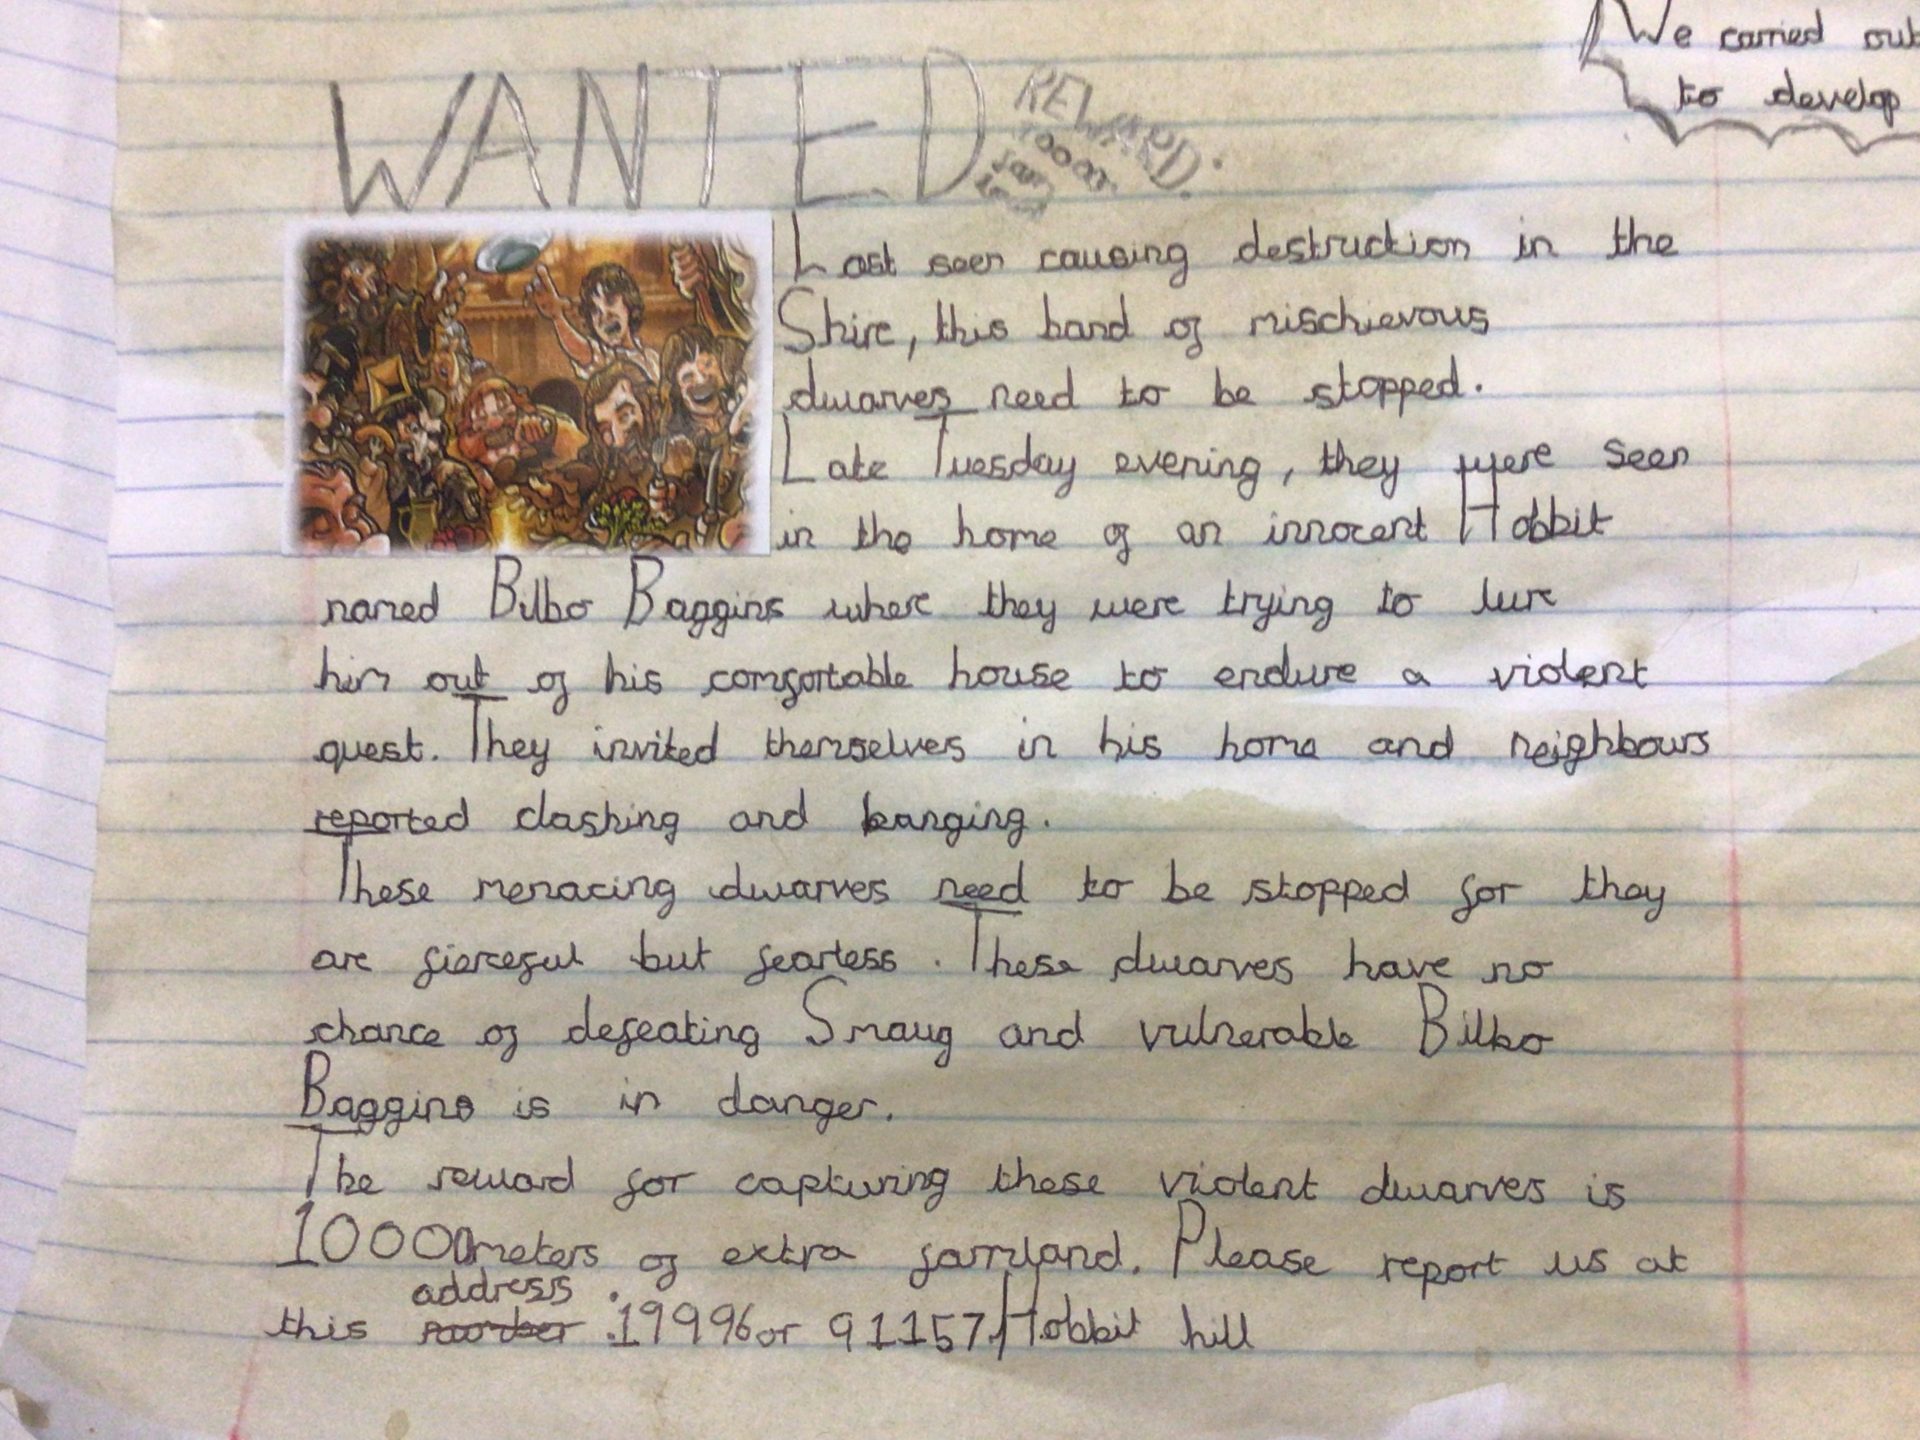 We carried out
to develop
WANTED
REWARD:
Last seen causing destruction in the
Shire, this band of mischievous
dwarves need to be stopped.
Late Tuesday evening, they were seen
in the home of an innocent Hobbit
named Bilbo Baggins where they were trying to lure
him out of his comfortable house to endure a violent
quest. They invited themselves in his home and neighbours
reported clashing and banging.
These menacing dwarves need to be stopped for they
are fierceful but fearless. These dwarves have no
chance of defeating Smaug and vulnerable Bilbo
Baggins is in danger.
The reward for capturing these violent dwarves is
meters of extra farmland. Please report us at
address
this : 19996 or 91157, Hobbit hill